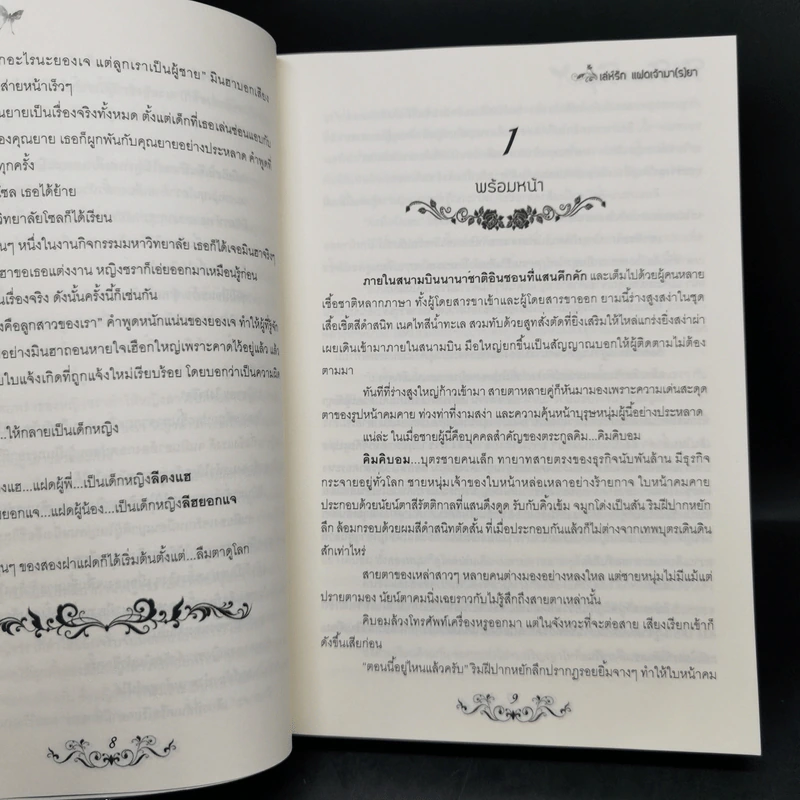 กอะไรนะยองเจ แต่ลูกเราเป็นผู้ชาย" มินฮาบอกเสียง
ส่ายหน้าเร็วๆ
ณยายเป็นเรื่องจริงทั้งหมด ตั้งแต่เด็กที่เธอเล่นซ่อนแอบกับ
องคุณยาย เธอก็ผูกพันกับคุณยายอย่างประหลาด คำพูดที่
ทุกครั้ง
โซล เธอได้ย้าย
วิทยาลัยโซลก็ได้เรียน
นๆ หนึ่งในงานกิจกรรมมหาวิทยาลัย เธอก็ได้เจอมินฮาจริงๆ
ฮาขอเธอแต่งงาน หญิงชราก็เอ่ยออกมาเหมือนรู้ก่อน
นเรื่องจริง ดังนั้นครั้งนี้ก็เช่นกัน
งคือลูกสาวของเรา" คำพูดหนักแน่นของยองเจ ทำให้ผู้ที่รู้จัก
อย่างมินฮาถอนหายใจเฮือกใหญ่เพราะคาดไว้อยู่แล้ว แล้ว
ยใบแจ้งเกิดที่ถูกแจ้งใหม่เรียบร้อย โดยบอกว่าเป็นความผิด
...ให้กลายเป็นเด็กหญิง
องแฮ...แฝดผู้พี่...เป็นเด็กหญิงลีดงแฮ
ยอกแจ...แฝดผู้น้อง...เป็นเด็กหญิงลีฮยอกแจ
นๆ ของสองฝาแฝดก็ได้เริ่มต้นตั้งแต่...ลืมตาดูโลก
8
เล่ห์รัก แฝดเจ้ามา(ร)ยา
1
พร้อมหน้า
ภายในสนามบินนานาชาติอินชอนที่แสนคึกคัก และเต็มไปด้วยผู้คนหลาย
เชื้อชาติหลากภาษา ทั้งผู้โดยสารขาเข้าและผู้โดยสารขาออก ยามนี้ร่างสูงสง่าในชุด
เสื้อเชิ้ตสีดำสนิท เนคไทสีน้ำทะเล สวมทับด้วยสูทสั่งตัดที่ยิ่งเสริมให้ไหล่แกร่งยิ่งสง่าผ่า
เผยเดินเข้ามาภายในสนามบิน มือใหญ่ยกขึ้นเป็นสัญญาณบอกให้ผู้ติดตามไม่ต้อง
ตามมา
ทันทีที่ร่างสูงใหญ่ก้าวเข้ามา สายตาหลายคู่ก็หันมามองเพราะความเด่นสะดุด
ตาของรูปหน้าคมคาย ท่วงท่าที่งามสง่า และความคุ้นหน้าบุรุษหนุ่มผู้นี้อย่างประหลาด
แน่ล่ะ ในเมื่อชายผู้นี้คือบุคคลสำคัญของตระกูลคิม...คิมคิบอม
คิมคิบอม...บุตรชายคนเล็ก ทายาทสายตรงของธุรกิจนับพันล้าน มีธุรกิจ
กระจายอยู่ทั่วโลก ชายหนุ่มเจ้าของใบหน้าหล่อเหลาอย่างร้ายกาจ ใบหน้าคมคาย
ประกอบด้วยนัยน์ตาสีรัตติกาลที่แสนดึงดูด รับกับคิ้วเข้ม จมูกโด่งเป็นสัน ริมฝีปากหยัก
ลึก ล้อมกรอบด้วยผมสีดำสนิทตัดสั้น ที่เมื่อประกอบกันแล้วก็ไม่ต่างจากเทพบุตรเดินดิน
สักเท่าไหร่
สายตาของเหล่าสาวๆ หลายคนต่างมองอย่างหลงใหล แต่ชายหนุ่มไม่มีแม้แต่
ปรายตามอง นัยน์ตาคมนิ่งเฉยราวกับไม่รู้สึกถึงสายตาเหล่านั้น
คิบอมล้วงโทรศัพท์เครื่องหรูออกมา แต่ในจังหวะที่จะต่อสาย เสียงเรียกเข้าก็
ดังขึ้นเสียก่อน
"ตอนนี้อยู่ไหนแล้วครับ" ริมฝีปากหยักลึกปรากฏรอยยิ้มจางๆ ทำให้ใบหน้าคม
9